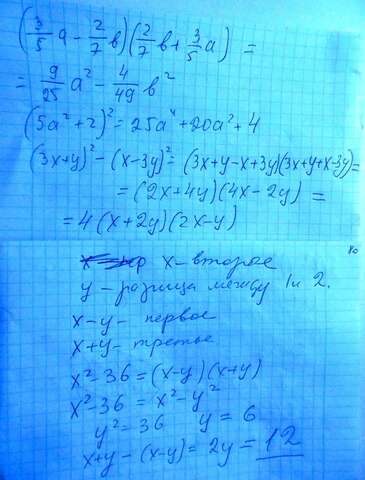 (3/5 a - 2/7 в)(2/7 в + 3/5 a) =
= 9/25 a² - 4/49 в²
(5a²+2)² = 25a⁴+20a²+4
(3x+y)² - (x-3y)² = (3x+y-x+3y)(3x+y+x-3y) =
= (2x+4y)(4x-2y) =
= 4(x+2y)(2x-y)
x - второе
y - разница между 1 и 2.
x-y - первое
x+y - третье
x²-36 = (x-y)(x+y)
x²-36 = x²-y²
y² = 36 y = 6
x+y-(x-y) = 2y = 12